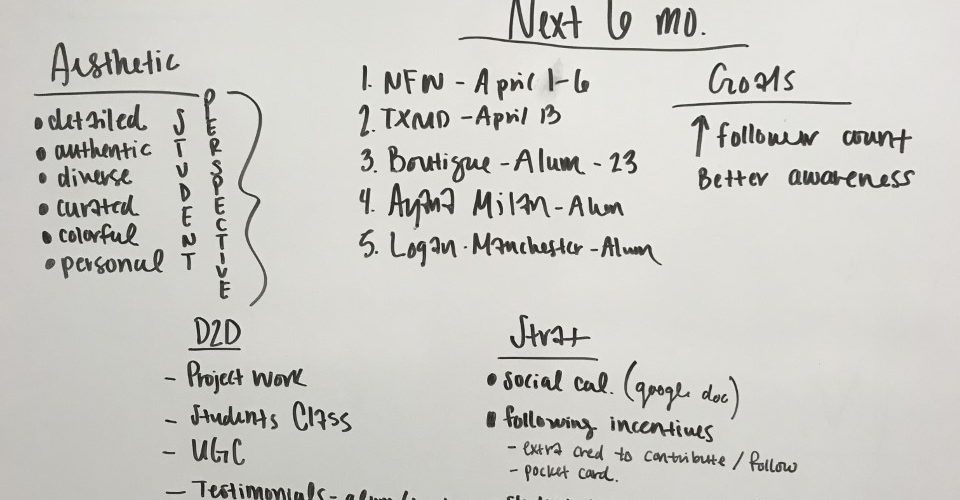 Next 6 mo.
Aesthetic
• detailed
• authentic
• diverse
• curated
• colorful
• personal
STUDENT
PERSPECTIVE
1. NFW - April 1-6
2. TXMD - April 13
3. Boutique - Alum - 23
4. Ayana Milan - Alum
5. Logan. Manchester - Alum
Goals
↑ follower count
Better awareness
D2D
- Project Work
- Students Class
- UGC
- Testimonials -
Strat
• social cal. (google doc)
• following incentives
- extra cred to contribute / follow
- pocket card.